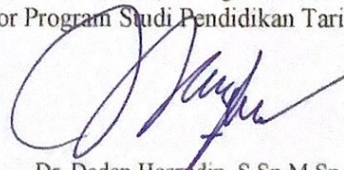 or Program Studi Pendidikan Tari
Dr. Deden Haerudin, S.Sn M.Sn